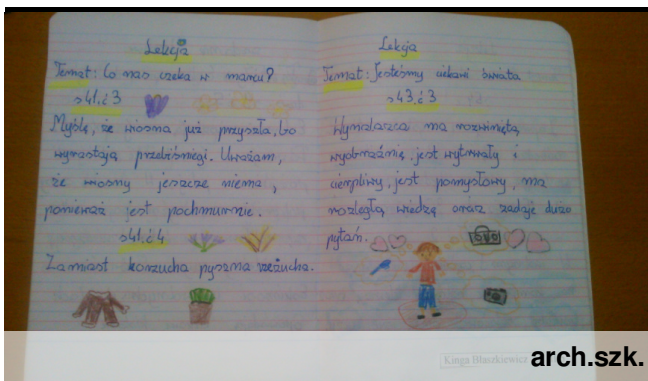 Lekcja
Temat: Co nas czeka w marcu?
s41.ć3
Myślę, że wiosna już przyszła, bo
wyrastają przebiśniegi. Uważam,
że wiosny jeszcze niema,
ponieważ jest pochmurnie.
s41.ć4
Zamiast korzucha pyszna rzeżucha.
Lekcja
Temat: Jesteśmy ciekawi świata
s43.ć3
Wynalazca ma rozwiniętą
wyobraźnię, jest wytrwały i
cierpliwy, jest pomysłowy, ma
rozległą wiedzę oraz zadaje dużo
pytań.
Kinga Błaszkiewicz
arch.szk.